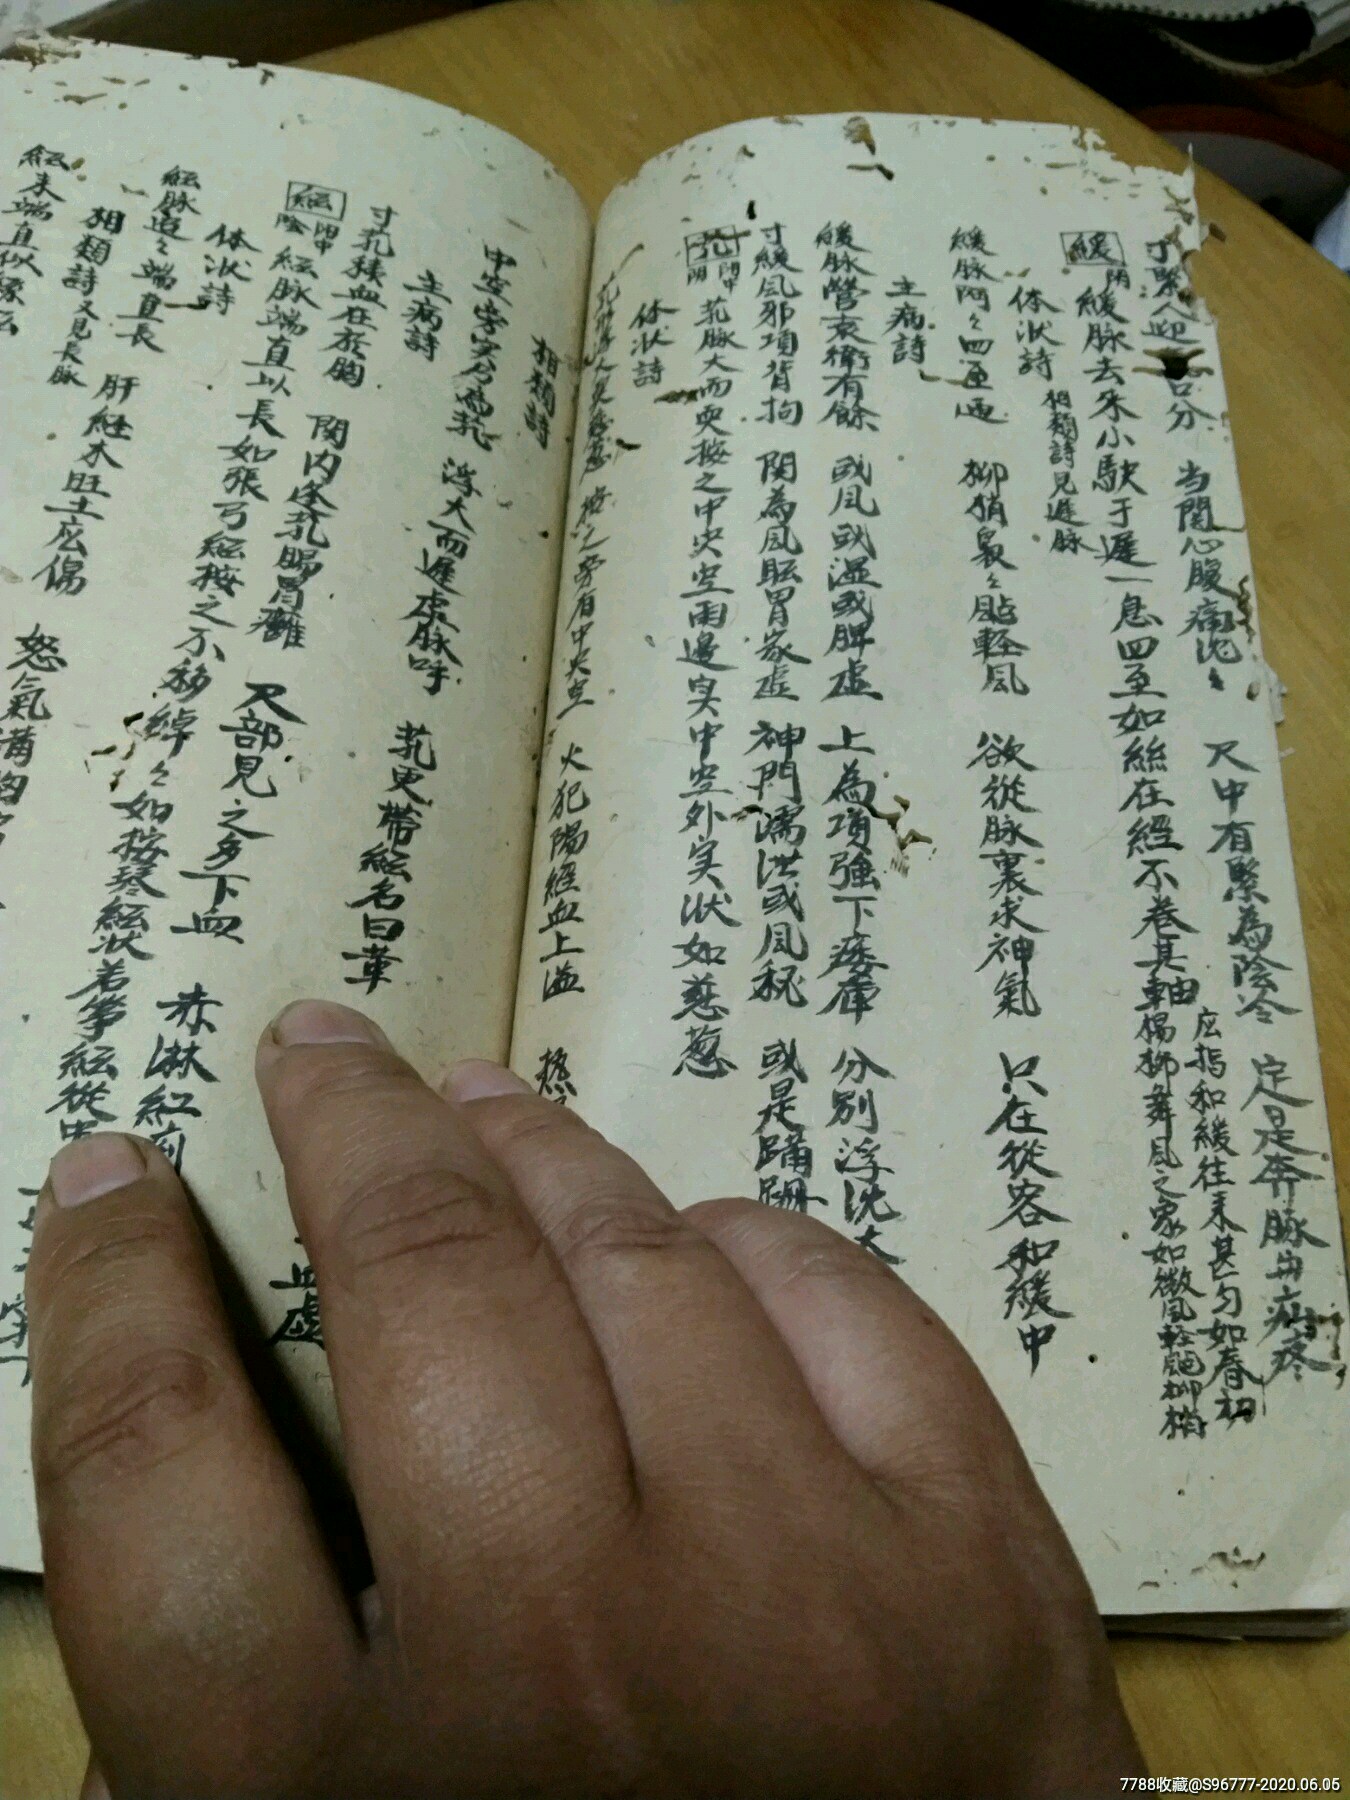 寸緊人迎 分 当関心腹痛沈々 尺中有緊為陰冷 定是奔豚与疝疼
緩 陰 緩脉去来小駃于遲一息四至如絲在經不卷其軸
应指和緩往来甚匀如春初
楊柳舞風之象如微風軽颭柳梢
体状詩 相類詩見遲脉
緩脉阿々四至通 柳梢裊々颭軽風 欲從脉裏求神氣 只在從容和緩中
主病詩
緩脉營衰衛有餘 或風或湿或脾虚 上為項強下痿痺 分別浮沈大
寸緩風邪項背拘 関為風眩胃家虚 神門濡泄或風秘 或是蹒跚
芤 陽中陰 芤脉大而耎按之中央空两邊实中空外实状如慈葱
体状詩
芤形浮大耎慈葱 按之旁有中央空 火犯陽經血上溢 熱
相類詩
中空旁实乃為芤 浮大而遲虚脉呼 芤更帯絃名曰革
主病詩
寸芤積血在於胸 関内逢芤腸胃癰 尺部見之多下血 赤淋紅痢 血虚
絃 陽中陰 絃脉端直以長如張弓絃按之不移綽々如按琴絃状若箏絃從
体状詩
絃脉迢々端直長 肝経木旺土应傷 怒氣満胸
相類詩 又見長脉
絃来端直似
7788收藏@S96777-2020.06.05